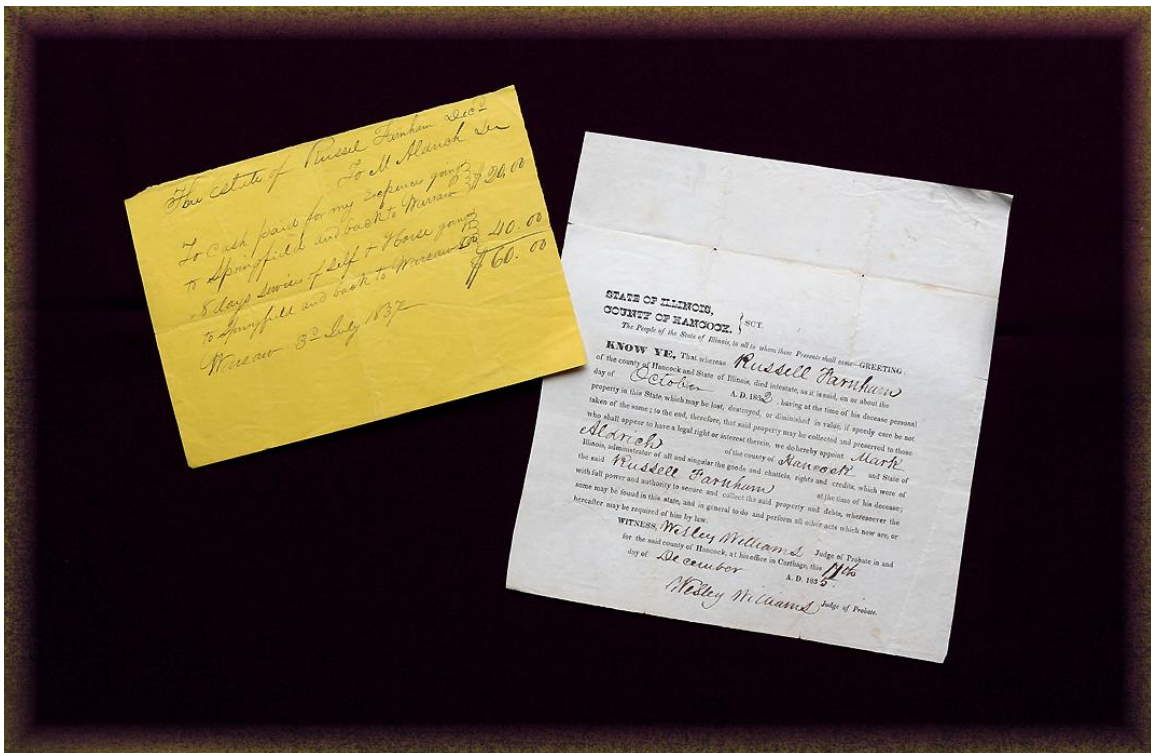 The estate of Russel Farnham Decd
To M Aldrich Dr
To Cash paid for my Expences going
to Springfield and back to Warsaw $20.00
8 days services of self & Horse going
to Springfield and back to Warsaw 40.00
$60.00
Warsaw 3d July 1837
STATE OF ILLINOIS,
COUNTY OF HANCOCK. } SCT.
The People of the State of Illinois, to all to whom these Presents shall come—GREETING:
KNOW YE, That whereas Russell Farnham
of the county of Hancock and State of Illinois, died intestate, as it is said, on or about the
day of October A. D. 1832, having at the time of his decease personal
property in this State, which may be lost, destroyed, or diminished in value, if speedy care be not
taken of the same; to the end, therefore, that said property may be collected and preserved to those
who shall appear to have a legal right or interest therein, we do hereby appoint Mark
Aldrich of the county of Hancock and State of
Illinois, administrator of all and singular the goods and chattels, rights and credits, which were of
the said Russell Farnham at the time of his decease;
with full power and authority to secure and collect the said property and debts, wheresoever the
same may be found in this state, and in general to do and perform all other acts which now are, or
hereafter may be required of him by law.
WITNESS, Wesley Williams Judge of Probate in and
for the said county of Hancock, at his office in Carthage, this
day of December A. D. 1835.
Wesley Williams Judge of Probate.